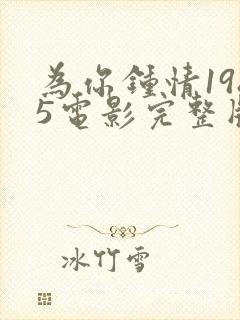 為你鍾情19
5電影完整
冰竹雪